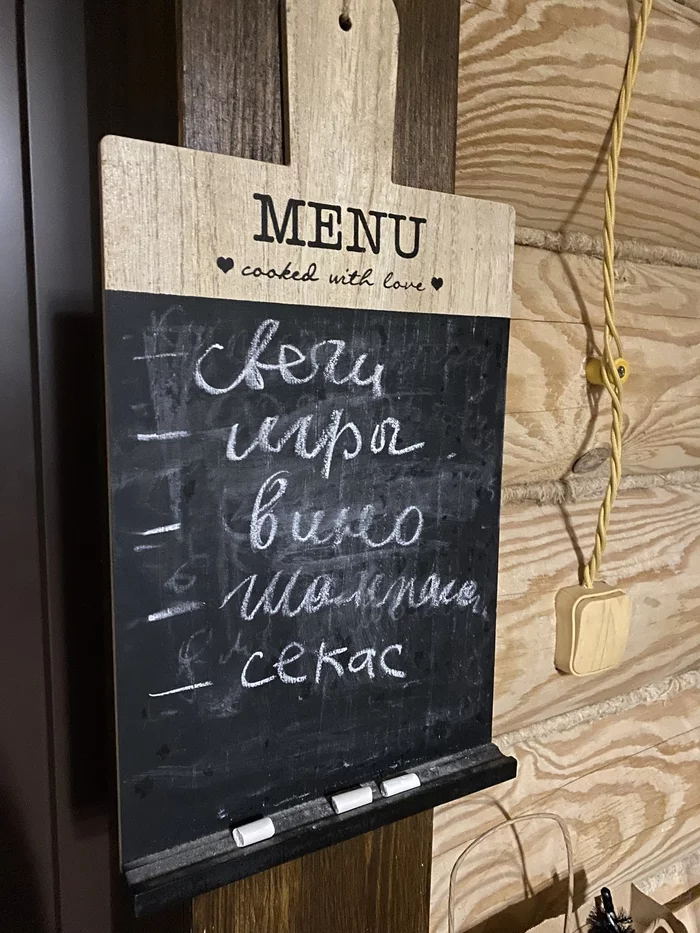 MENU
♥ cooked with love ♥
– свечи
– игры
– вино
– шампанск
– секас